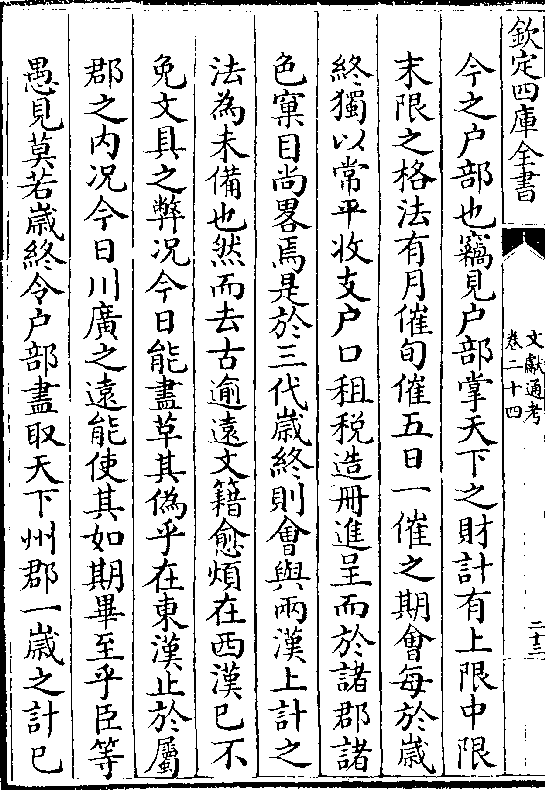 欽定四庫全書
文獻通考
卷二十四
二十三
今之户部也竊見户部掌天下之財計有上限中限
末限之格法有月催旬催五日一催之期會每於歲
終獨以常平收支户口租税造冊進呈而於諸郡諸
色窠目尚畧焉是於三代歲終則會與兩漢上計之
法為未備也然而去古逾遠文籍愈煩在西漢已不
免文具之弊况今日能盡草其偽乎在東漢止於屬
郡之内况今日川廣之遠能使其如期畢至乎臣等
愚見莫若歲終令户部盡取天下州郡一歲之計已